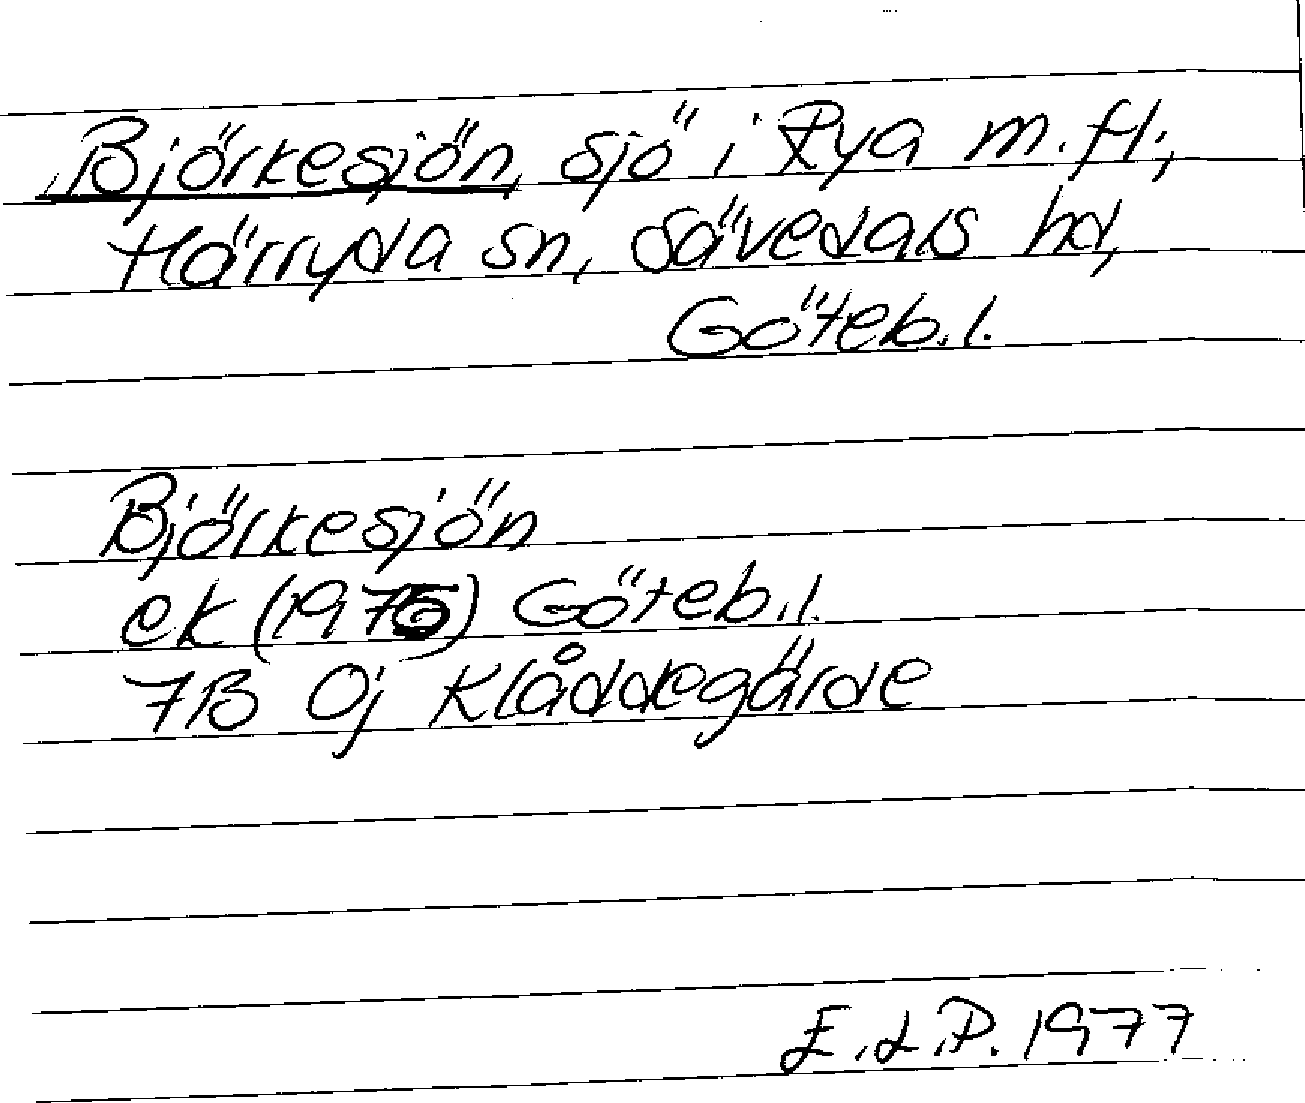 Björkesjön, sjö i Rya m.fl.,
Härryda sn, Sävedals hd,
Göteb.l.
Björkesjön
ek (1976) Göteb.l.
7B 0j Klåddegärde
E.L.P. 1977